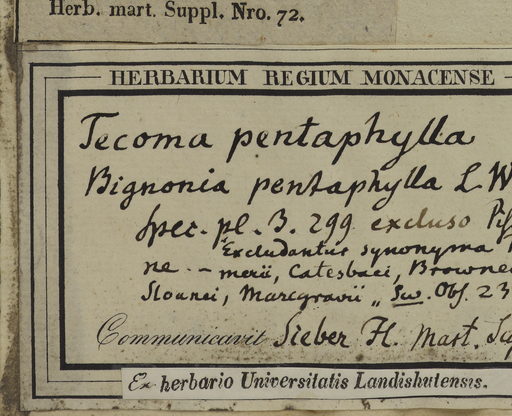 Herb. mart. Suppl. Nro. 72.
HERBARIUM REGIUM MONACENSE
Tecoma pentaphylla
Bignonia pentaphylla L W
spec. pl. 3. 299 excluso
"Excludantur synonyma
ne. – merii, Catesbaei, Browne
Sloanei, Marcgravii „ Sw. Obs. 23
Communicavit Sieber H. Mart. Sup
Ex herbario Universitatis Landishutensis.